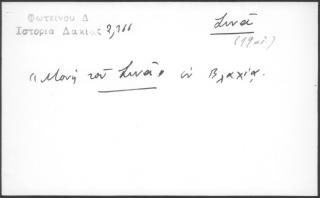 Φωτεινου Δ
Ιστορια Δακιας 3,166
Σινᾶ
(19 αἰ)
"Μονή τοῦ Σινᾶ" ἐν Βλαχίᾳ.